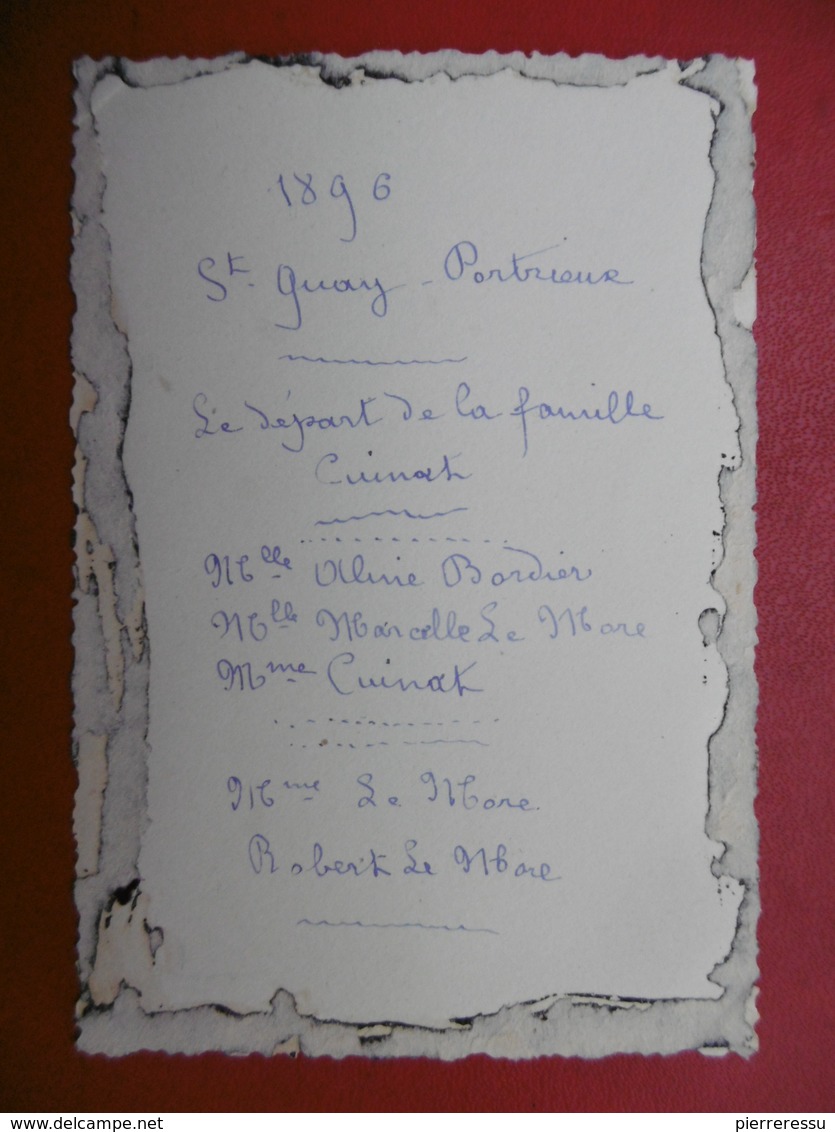 1896
St. Quay - Portrieux
Le départ de la famille
Cuinat
Mlle Aline Bordier
Mlle Marcelle Le Mare
Mme Cuinat
Mme Le More
Robert Le More
delcampe.net
pierreressu